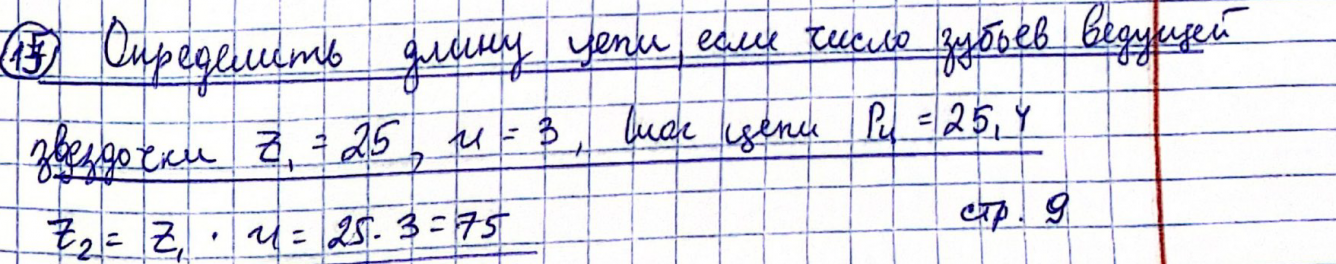 17 Определить длину цепи, если число зубьев ведущей
звездочки z₁ = 25, u = 3, шаг цепи Pц = 25,4
стр. 9
z₂ = z₁ · u = 25 · 3 = 75